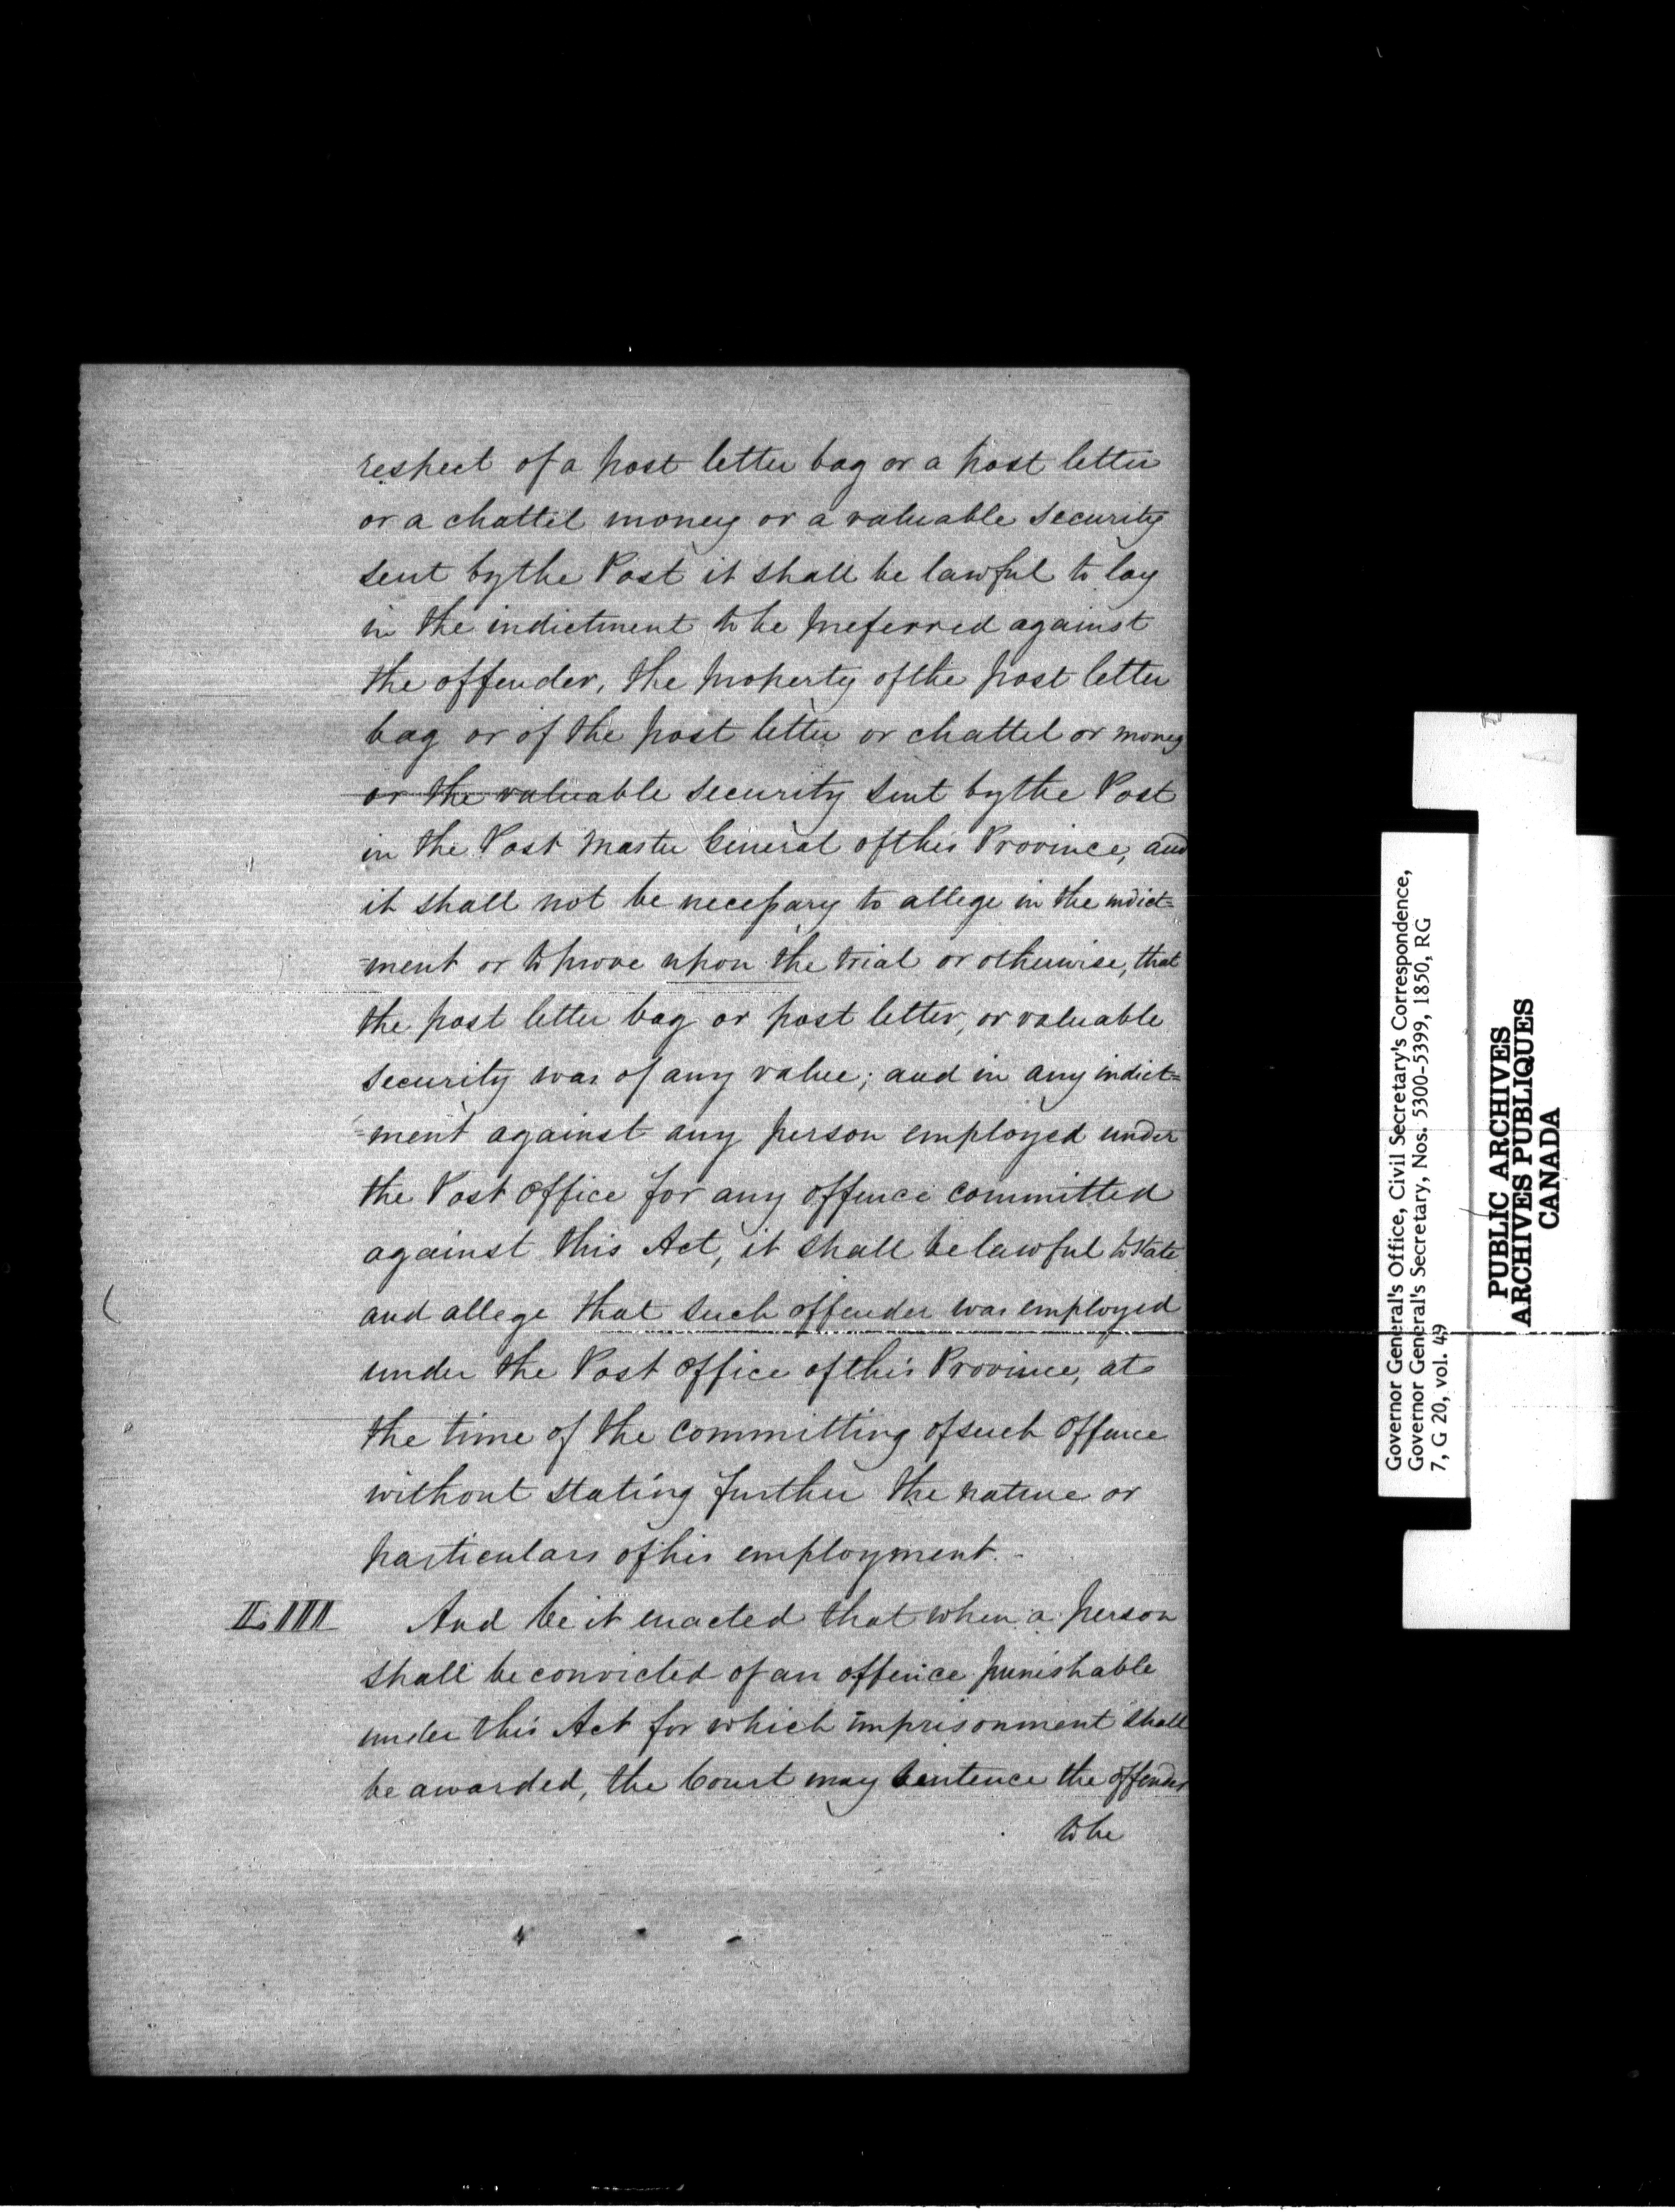 respect of a post letter bag or a post letter
or a chattel money or a valuable security
sent by the Post it shall be lawful to lay
in the indictment to be preferred against
the offender, the property of the post letter
bag or of the post letter or chattel or money
or the valuable security sent by the Post
in the Post Master General of this Province, and
it shall not be necessary to allege in the indict=
=ment or to prove upon the trial or otherwise, that
the post letter bag or post letter, or valuable
security was of any value; and in any indict=
=ment against any person employed under
the Post Office for any offence committed
against this Act, it shall be lawful to state
and allege that such offender was employed
under the Post Office of this Province, at
the time of the committing of such offence
without stating further the nature or
particulars of his employment. -
And be it enacted that when a person
shall be convicted of an offence punishable
under this Act for which imprisonment shall
be awarded, the Court may sentence the offender
to be
Governor General's Office, Civil Secretary's Correspondence,
Governor General's Secretary, Nos. 5300-5399, 1850, RG
7, G 20, vol. 49
PUBLIC ARCHIVES
ARCHIVES PUBLIQUES
CANADA